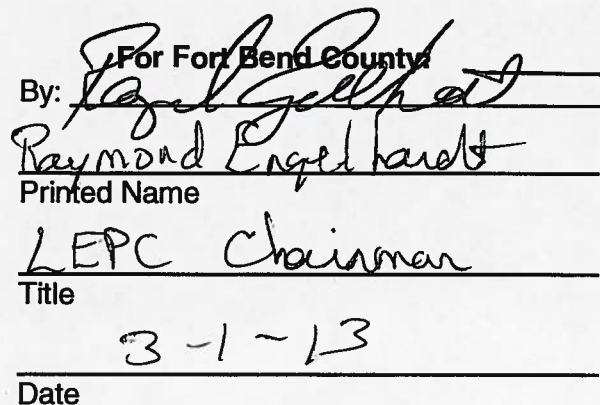 For Fort Bend County:
By:
Raymond Engelhardt
Printed Name
LEPC Chairman
Title
3-1-13
Date